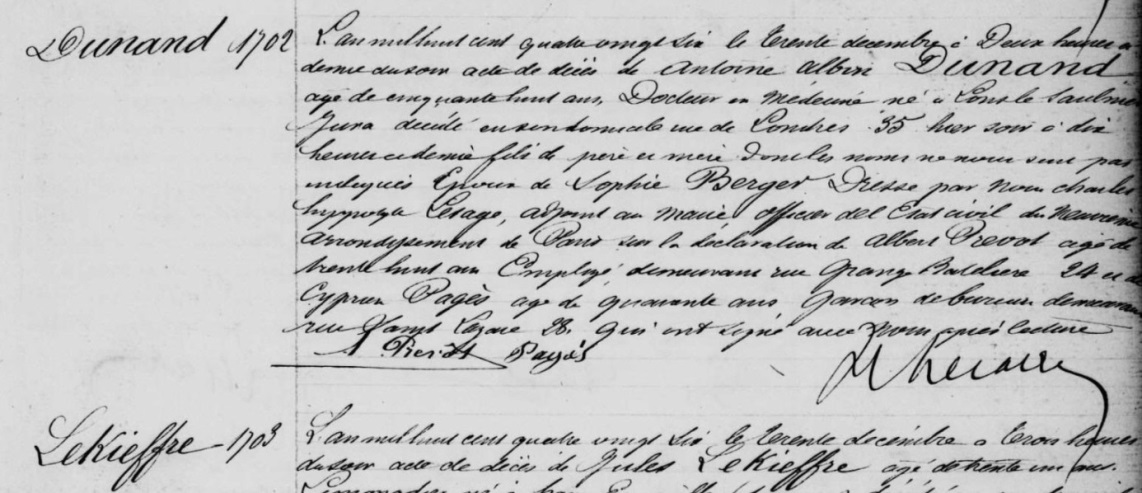 Dunand 1702
L'an mil huit cent quatre vingt six le trente decembre à Deux heures et
demie du soir acte de décès de Antoine Albin DUNAND
agé de cinquante huit ans, Docteur en médecine né à Lons le Saulnier
Jura décédé en son domicile rue de Londres 35 hier soir à dix
heures et demie fils de père et mère dont les noms ne nous sont pas
indiqués Epoux de Sophie Berger Dressé par nous Charles
hippolyte Lesage, adjoint au Maire officier de l'Etat civil du Neuvième
arrondissement de Paris sur la déclaration de Albert Prevot agé de
trente huit ans Employé demeurant rue Grange Batelière 24 et de
Cyprien Pagès agé de quarante ans Garçon de bureau demeurant
rue Saint Lazare 28 qui ont signé avec Nous après lecture
A Prevot Pagès
LeKieffre 1703
L'an mil huit cent quatre vingt six le trente décembre à trois heures
du soir acte de décès de Jules LeKieffre agé de trente un ans.